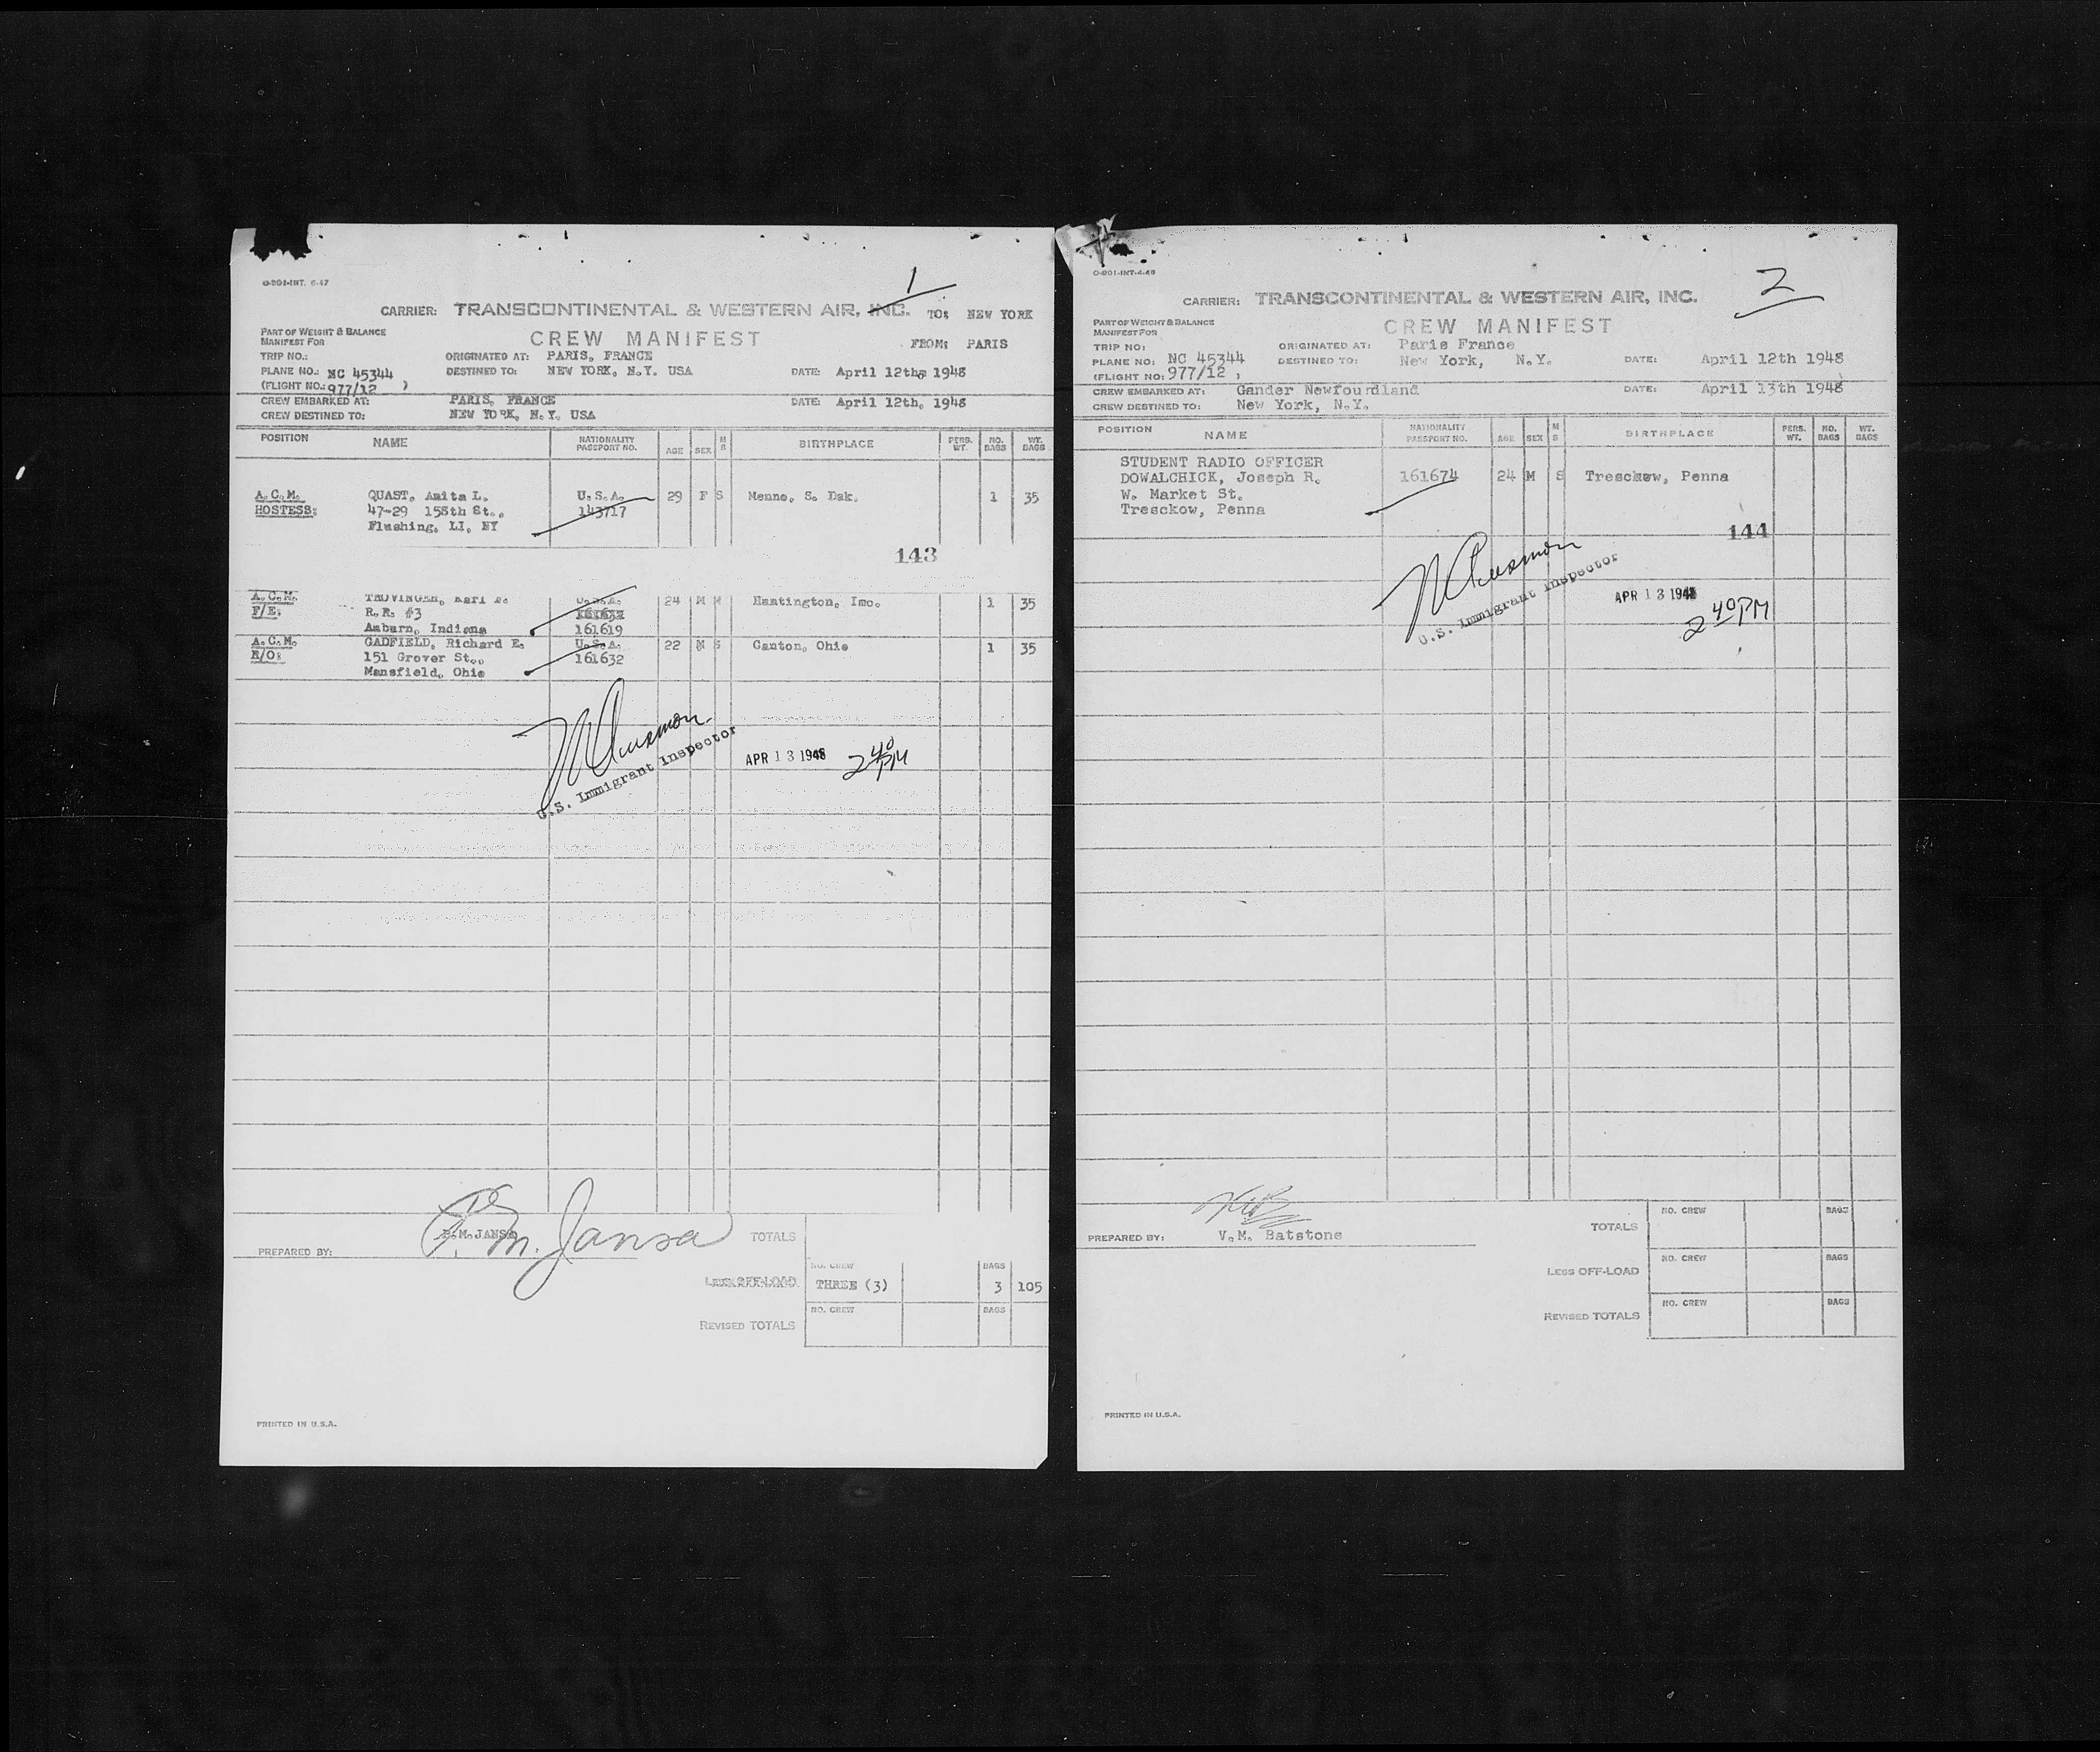 O-801-INT. 6-47
1
CARRIER: TRANSCONTINENTAL & WESTERN AIR, INC. TO: NEW YORK
PART OF WEIGHT & BALANCE
MANIFEST FOR
CREW MANIFEST
FROM: PARIS
TRIP NO.: ORIGINATED AT: PARIS, FRANCE
PLANE NO.: NC 45344 DESTINED TO: NEW YORK, N.Y. USA DATE: April 12th, 1948
(FLIGHT NO.: 977/12 )
CREW EMBARKED AT: PARIS, FRANCE DATE: April 12th, 1948
CREW DESTINED TO: NEW YORK, N.Y. USA
POSITION NAME NATIONALITY PASSPORT NO. AGE SEX M S BIRTHPLACE PERS. WT. NO. BAGS WT. BAGS
A.C.M. QUAST, Anita L. U.S.A. 29 F S Menno, S. Dak. 1 35
HOSTESS: 47-29 158th St., 143717
Flushing, LI, NY
143
A.C.M. U.S.A. 24 M M Huntington, 1 35
F/E: R.R. #3
Auburn, Indiana 161619
A.C.M. GADFIELD, Richard E. U.S.A. 22 M S Canton, Ohio 1 35
R/O: 151 Grover St., 161632
Mansfield, Ohio
U.S. Immigrant Inspector
APR 13 1948 2 40 PM
PREPARED BY: P.M. Jansa
TOTALS
NO. CREW BAGS
LESS OFF-LOAD THREE (3) 3 105
NO. CREW BAGS
REVISED TOTALS
PRINTED IN U.S.A.
O-801-INT-4-48
2
CARRIER: TRANSCONTINENTAL & WESTERN AIR, INC.
PART OF WEIGHT & BALANCE
MANIFEST FOR
CREW MANIFEST
TRIP NO: ORIGINATED AT: Paris France
PLANE NO: NC 45344 DESTINED TO: New York, N.Y. DATE: April 12th 1948
(FLIGHT NO: 977/12 )
CREW EMBARKED AT: Gander Newfoundland DATE: April 13th 1948
CREW DESTINED TO: New York, N.Y.
POSITION NAME NATIONALITY PASSPORT NO. AGE SEX M S BIRTHPLACE PERS. WT. NO. BAGS WT. BAGS
STUDENT RADIO OFFICER
DOWALCHICK, Joseph R. 161674 24 M S Tresckow, Penna
W. Market St.
Tresckow, Penna
144
U.S. Immigrant Inspector
APR 13 1948
2 40 PM
PREPARED BY: V.M. Batstone
NO. CREW BAGS
TOTALS
NO. CREW BAGS
LESS OFF-LOAD
NO. CREW BAGS
REVISED TOTALS
PRINTED IN U.S.A.